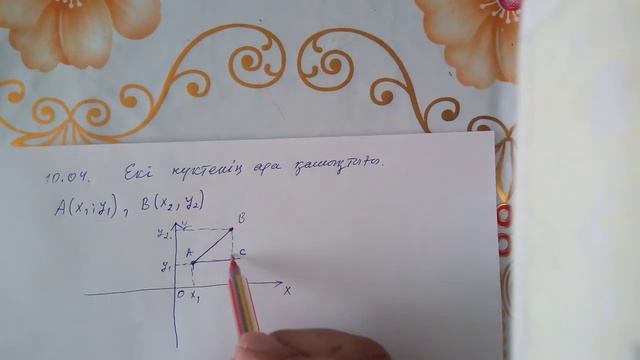 10.04. Екі нүктенің ара қашықтығы.
A(x₁; y₁), B(x₂, y₂)
y
B
y₂
A
C
y₁
O x₁ x